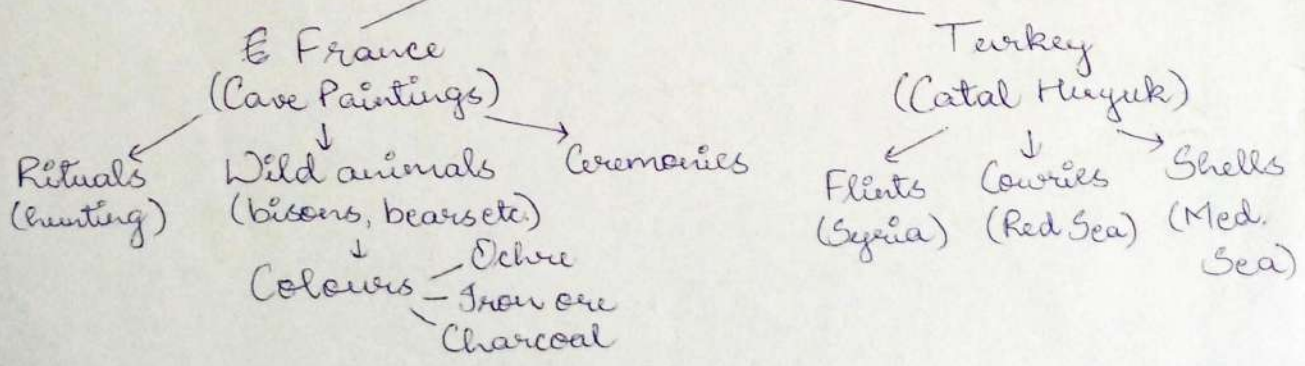 France
(Cave Paintings)
Rituals
(hunting)
Wild animals
(bisons, bears etc.)
Colours
Ochre
Iron ore
Charcoal
Ceremonies
Turkey
(Catal Huyuk)
Flints
(Syria)
Cowries
(Red Sea)
Shells
(Med.
Sea)